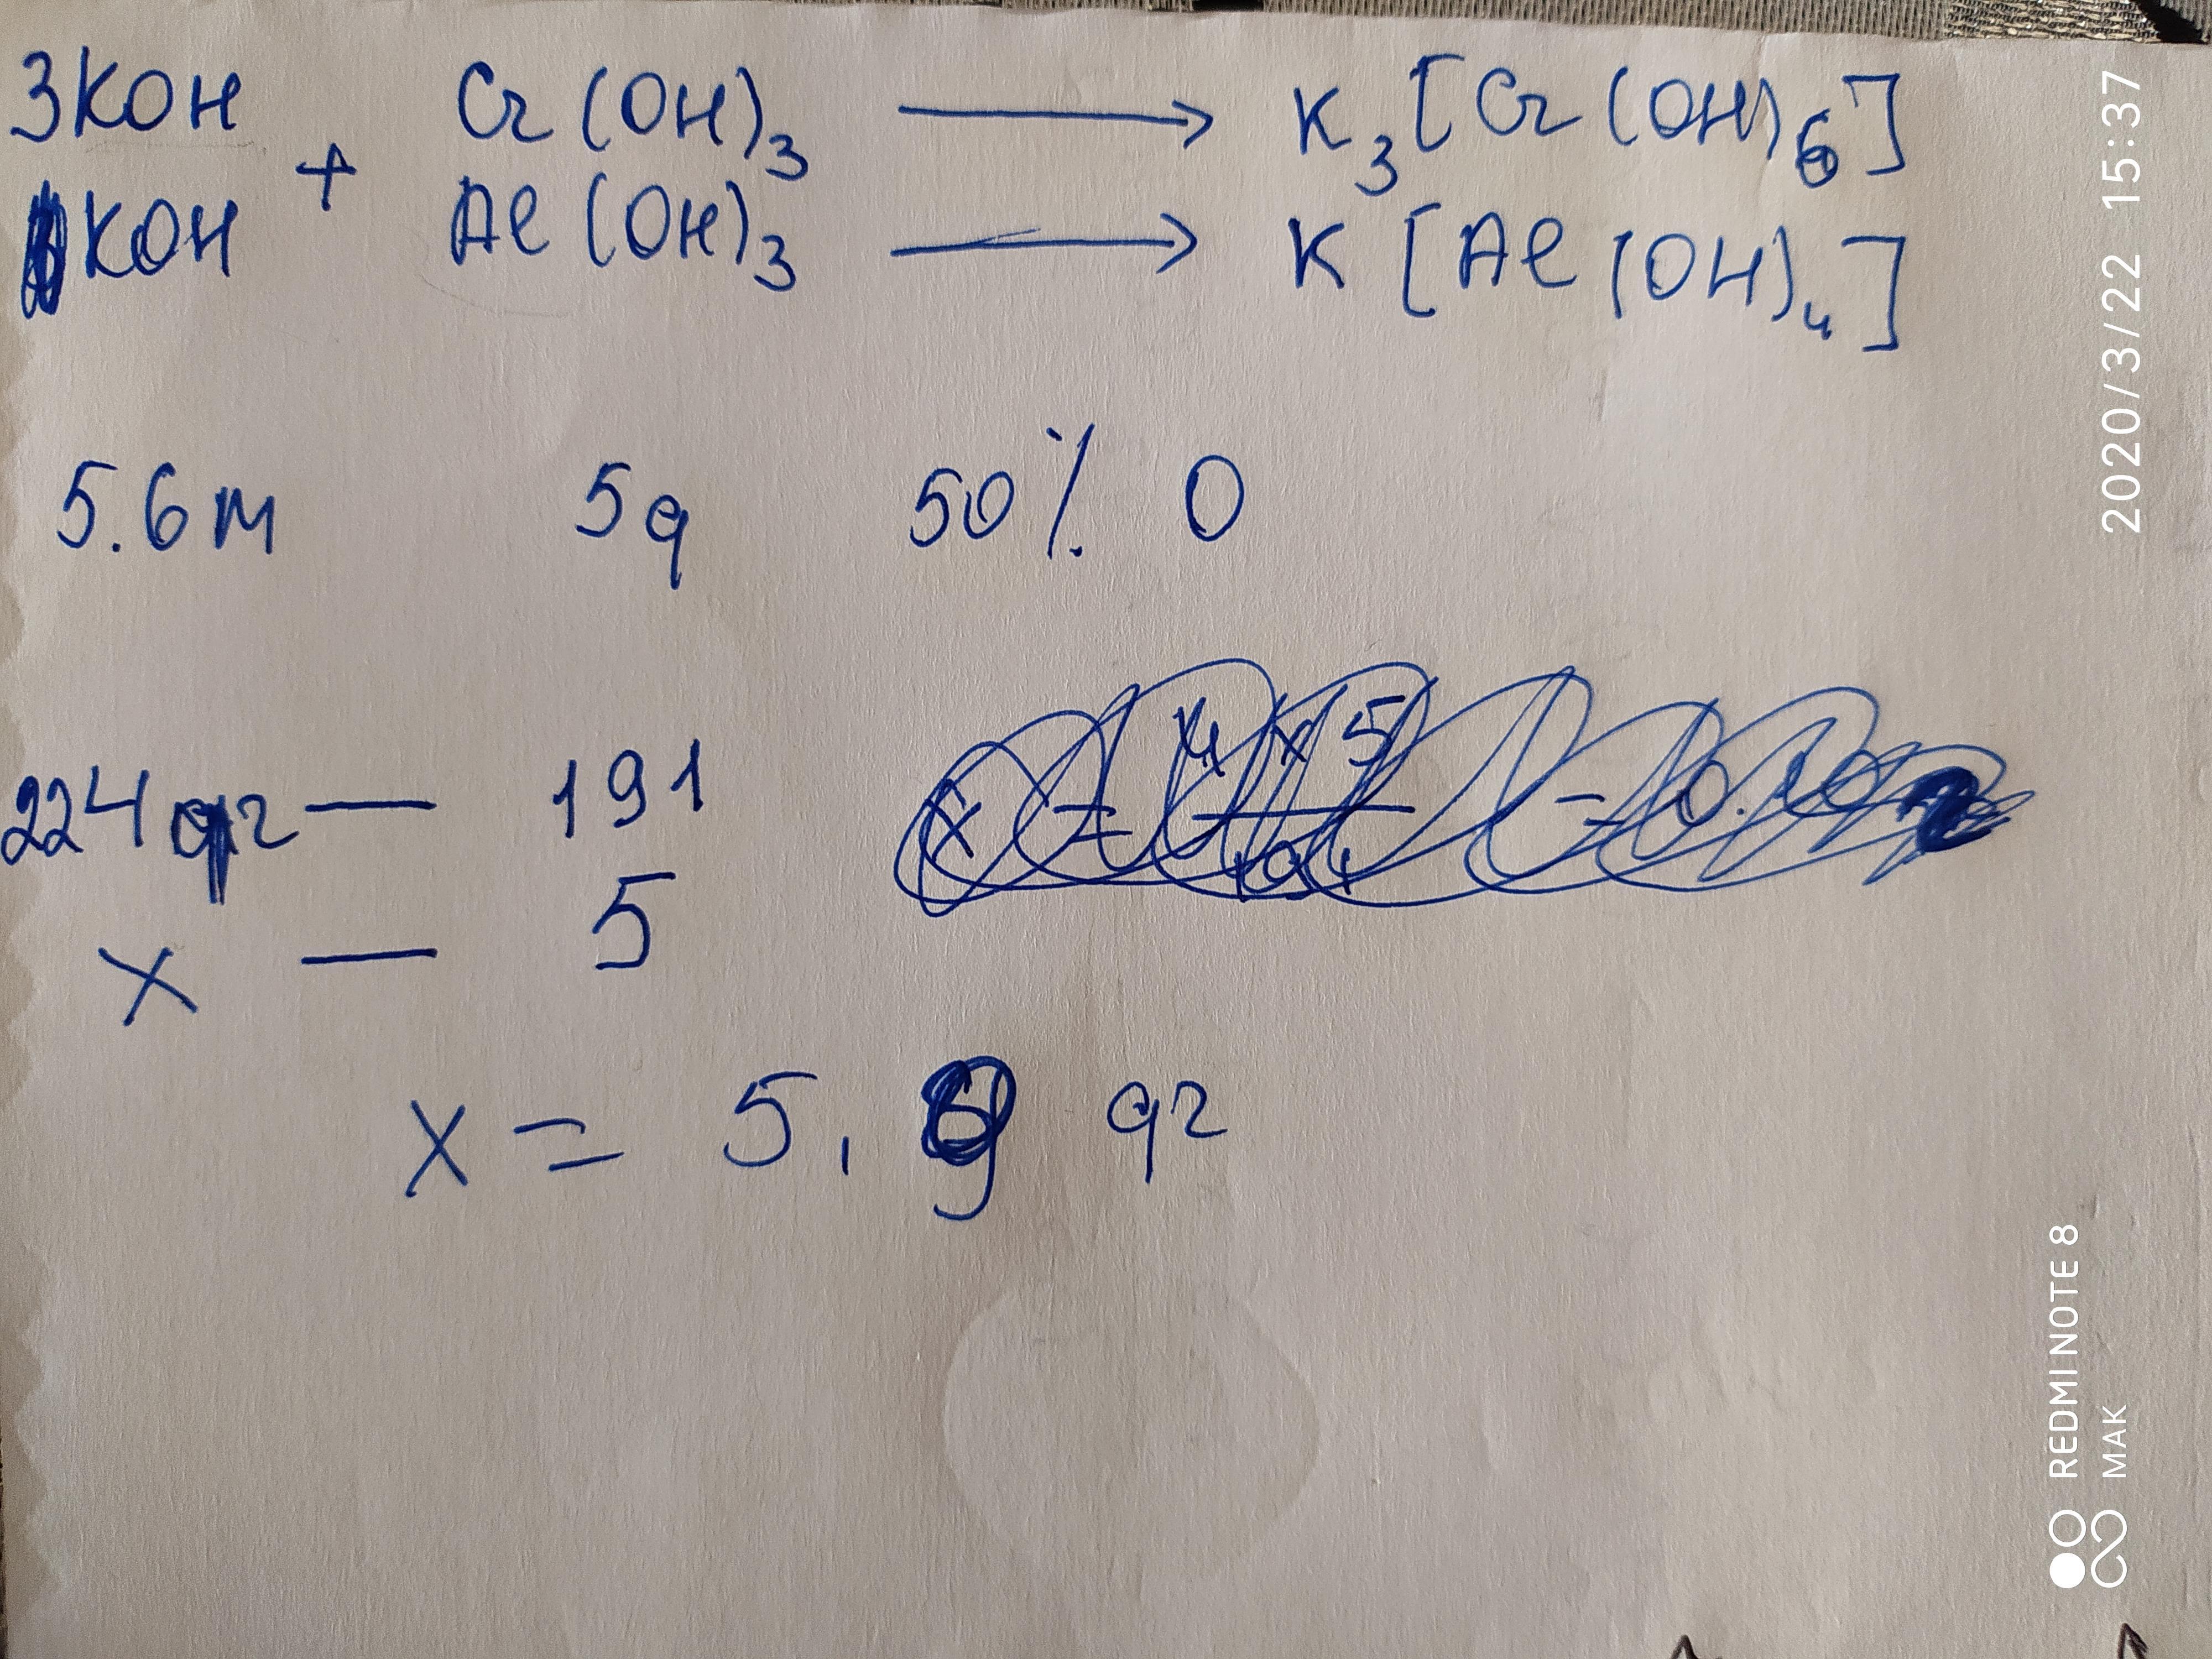 3KOH + Cr(OH)₃ ⟶ K₃[Cr(OH)₆]
KOH Al(OH)₃ ⟶ K[Al(OH)₄]
5.6м 5q 50% O
224 qг — 191
x — 5
x = 5,9 qг
2020/3/22 15:37
REDMI NOTE 8
MAK